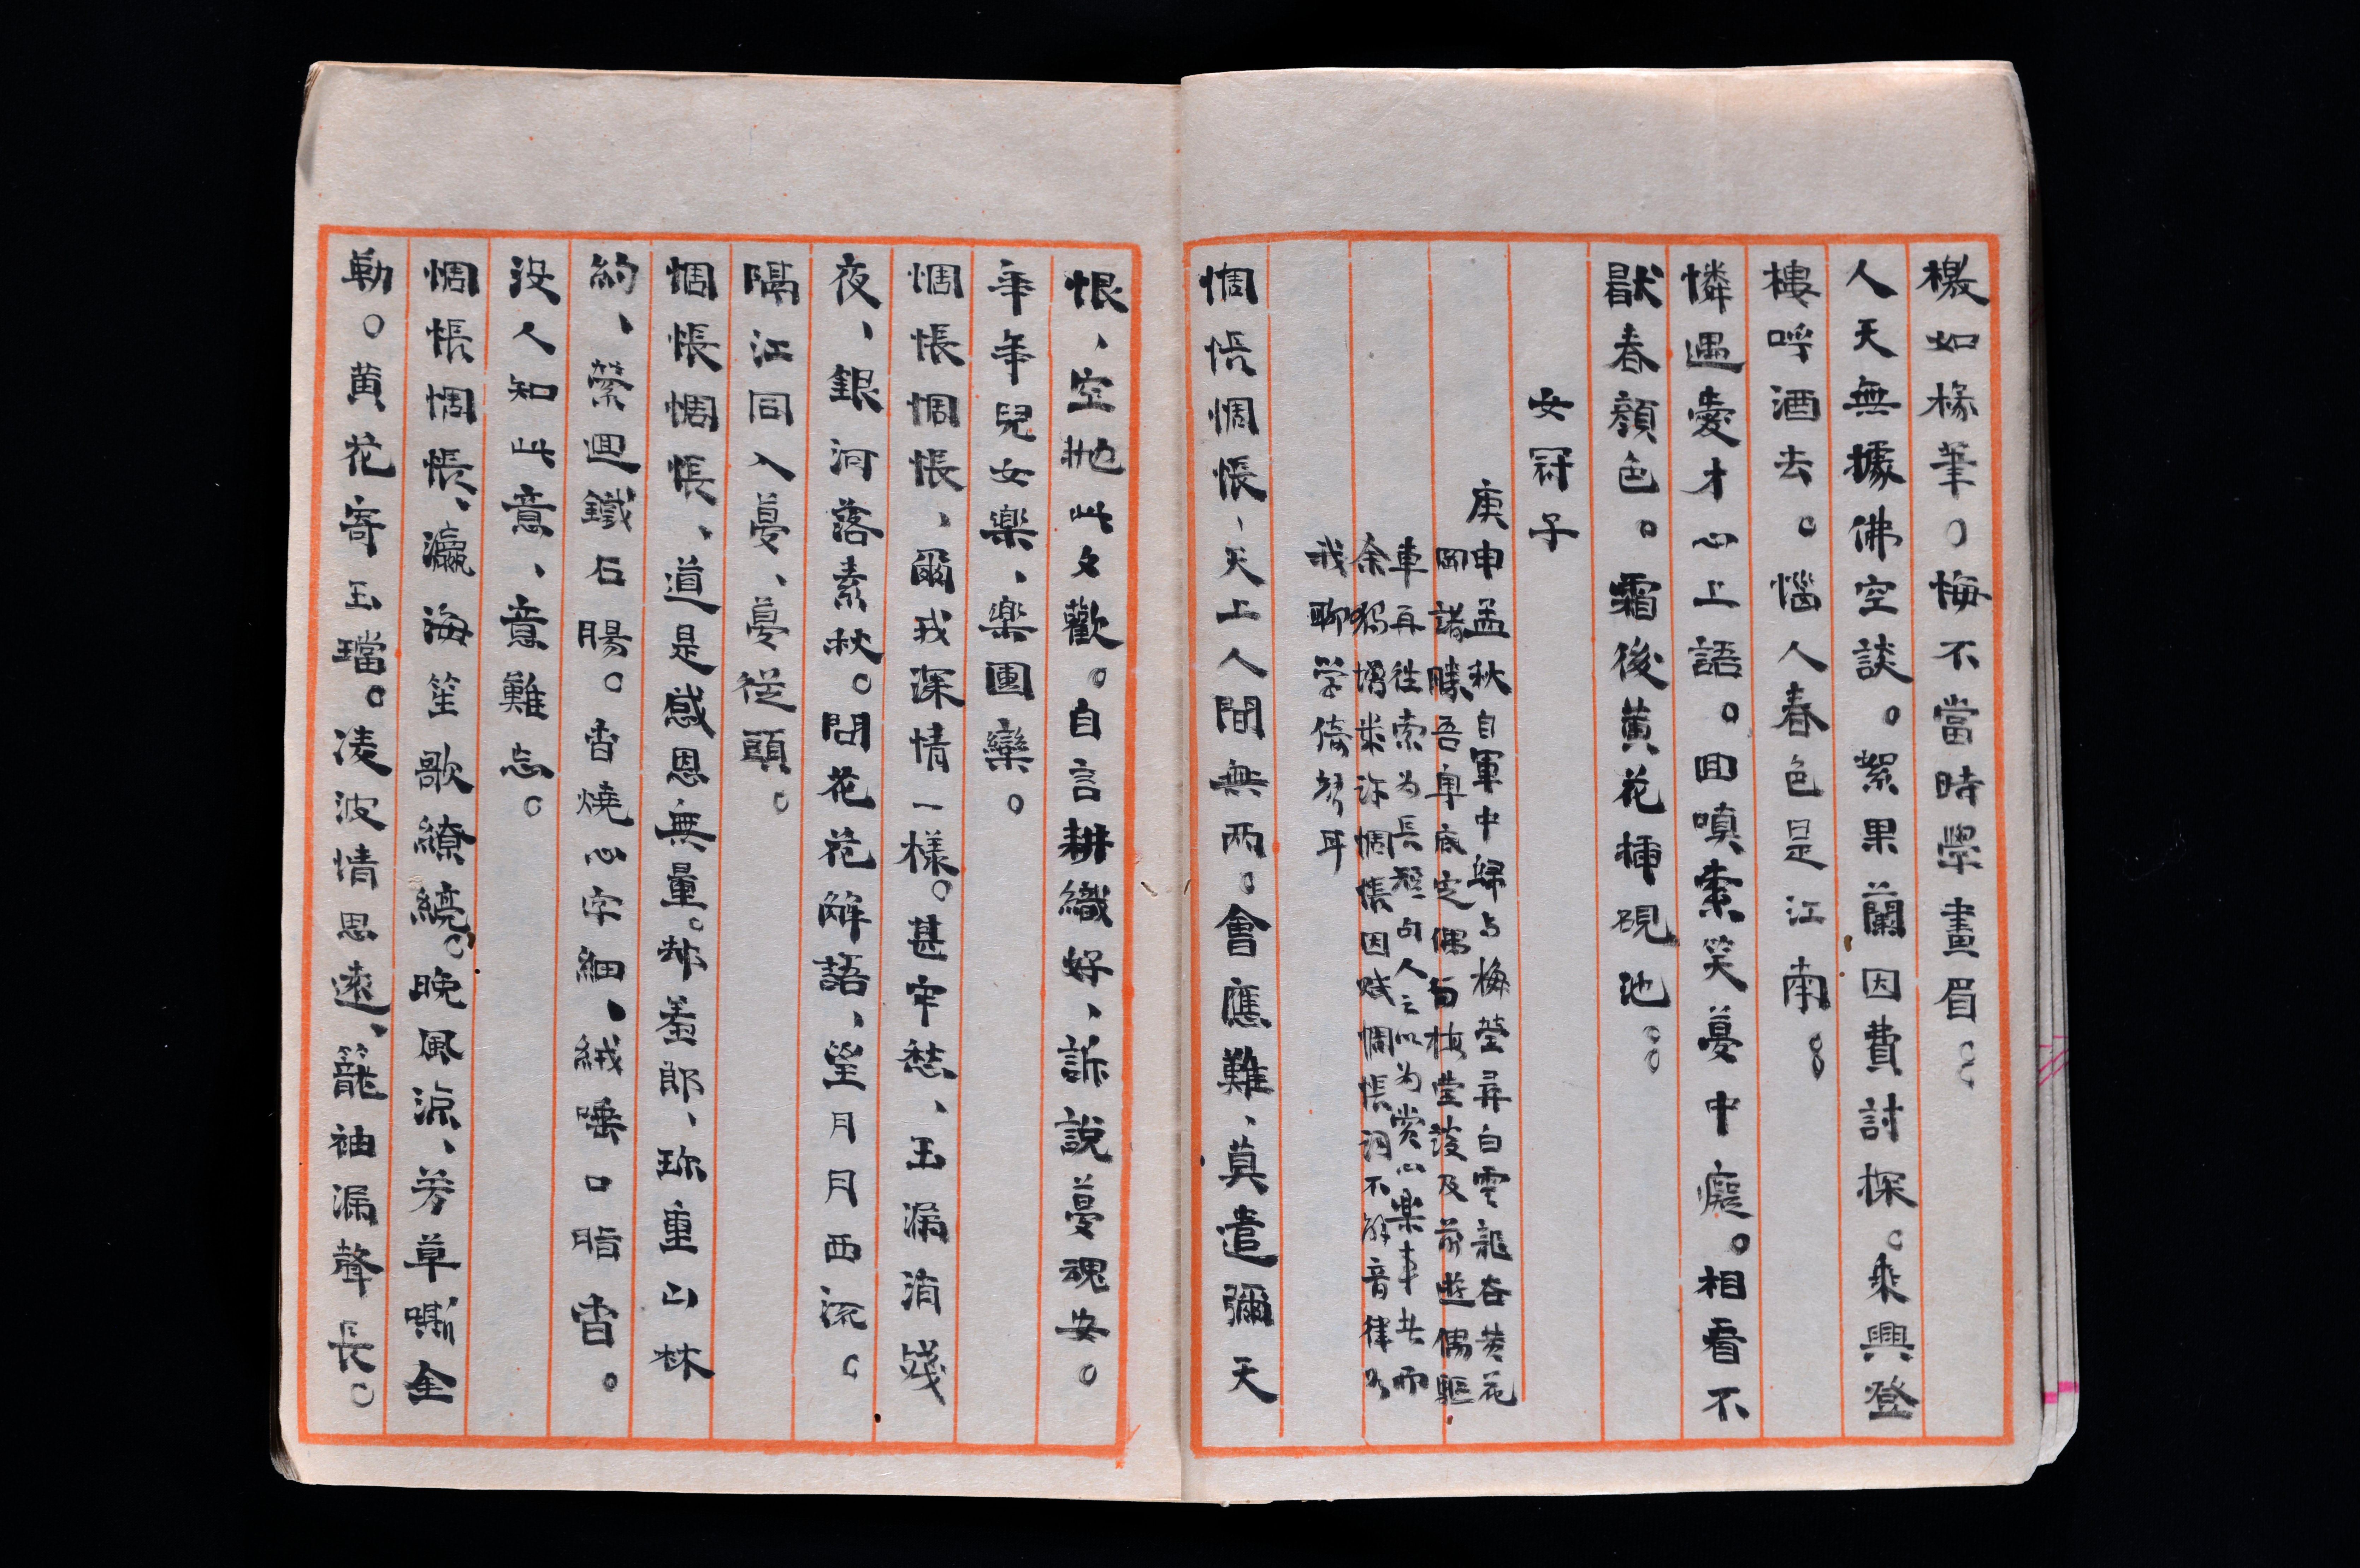 檄如椽筆。梅不當時學畫眉。。
人天無據佛空談。絮果蘭因費討探。乘興登
樓呼酒去。惱人春色是江南。。
憐遇愛才心上語。回嗔索笑夢中癡。相看不
猒春顏色。霜後黃花插硯池。。
女冠子
庚申孟秋自軍中歸与梅瑩尋白雲龍谷黃花
岡諸勝吾車底定偶与梅瑩談及前遊偶驅
車再往索为長短句人之以为賞心樂事者而
余獨增悲詠惆悵因賦惆悵詞不解音律
我聊学倚聲耳
惆悵惆悵、天上人間無兩。會應難、莫遣彌天
恨、空拋此夕歡。自言耕織好、訴說夢魂安。
年年兒女樂、樂團欒。
惆悵惆悵、爾我深情一樣。甚牢愁、玉漏消殘
夜、銀河落素秋。問花花解語、望月月西流。
隔江同入夢、夢從頭。
惆悵惆悵、道是感恩無量。却羞郎、珍重山林
約、縈迴鐵石腸。香燒心字細、絨唾口脂香。
沒人知此意、意難忘。
惆悵惆悵、瀛海笙歌繚繞。晚風涼、芳草嘶金
勒。黃花寄玉璫。凌波情思遠、籠袖漏聲長。